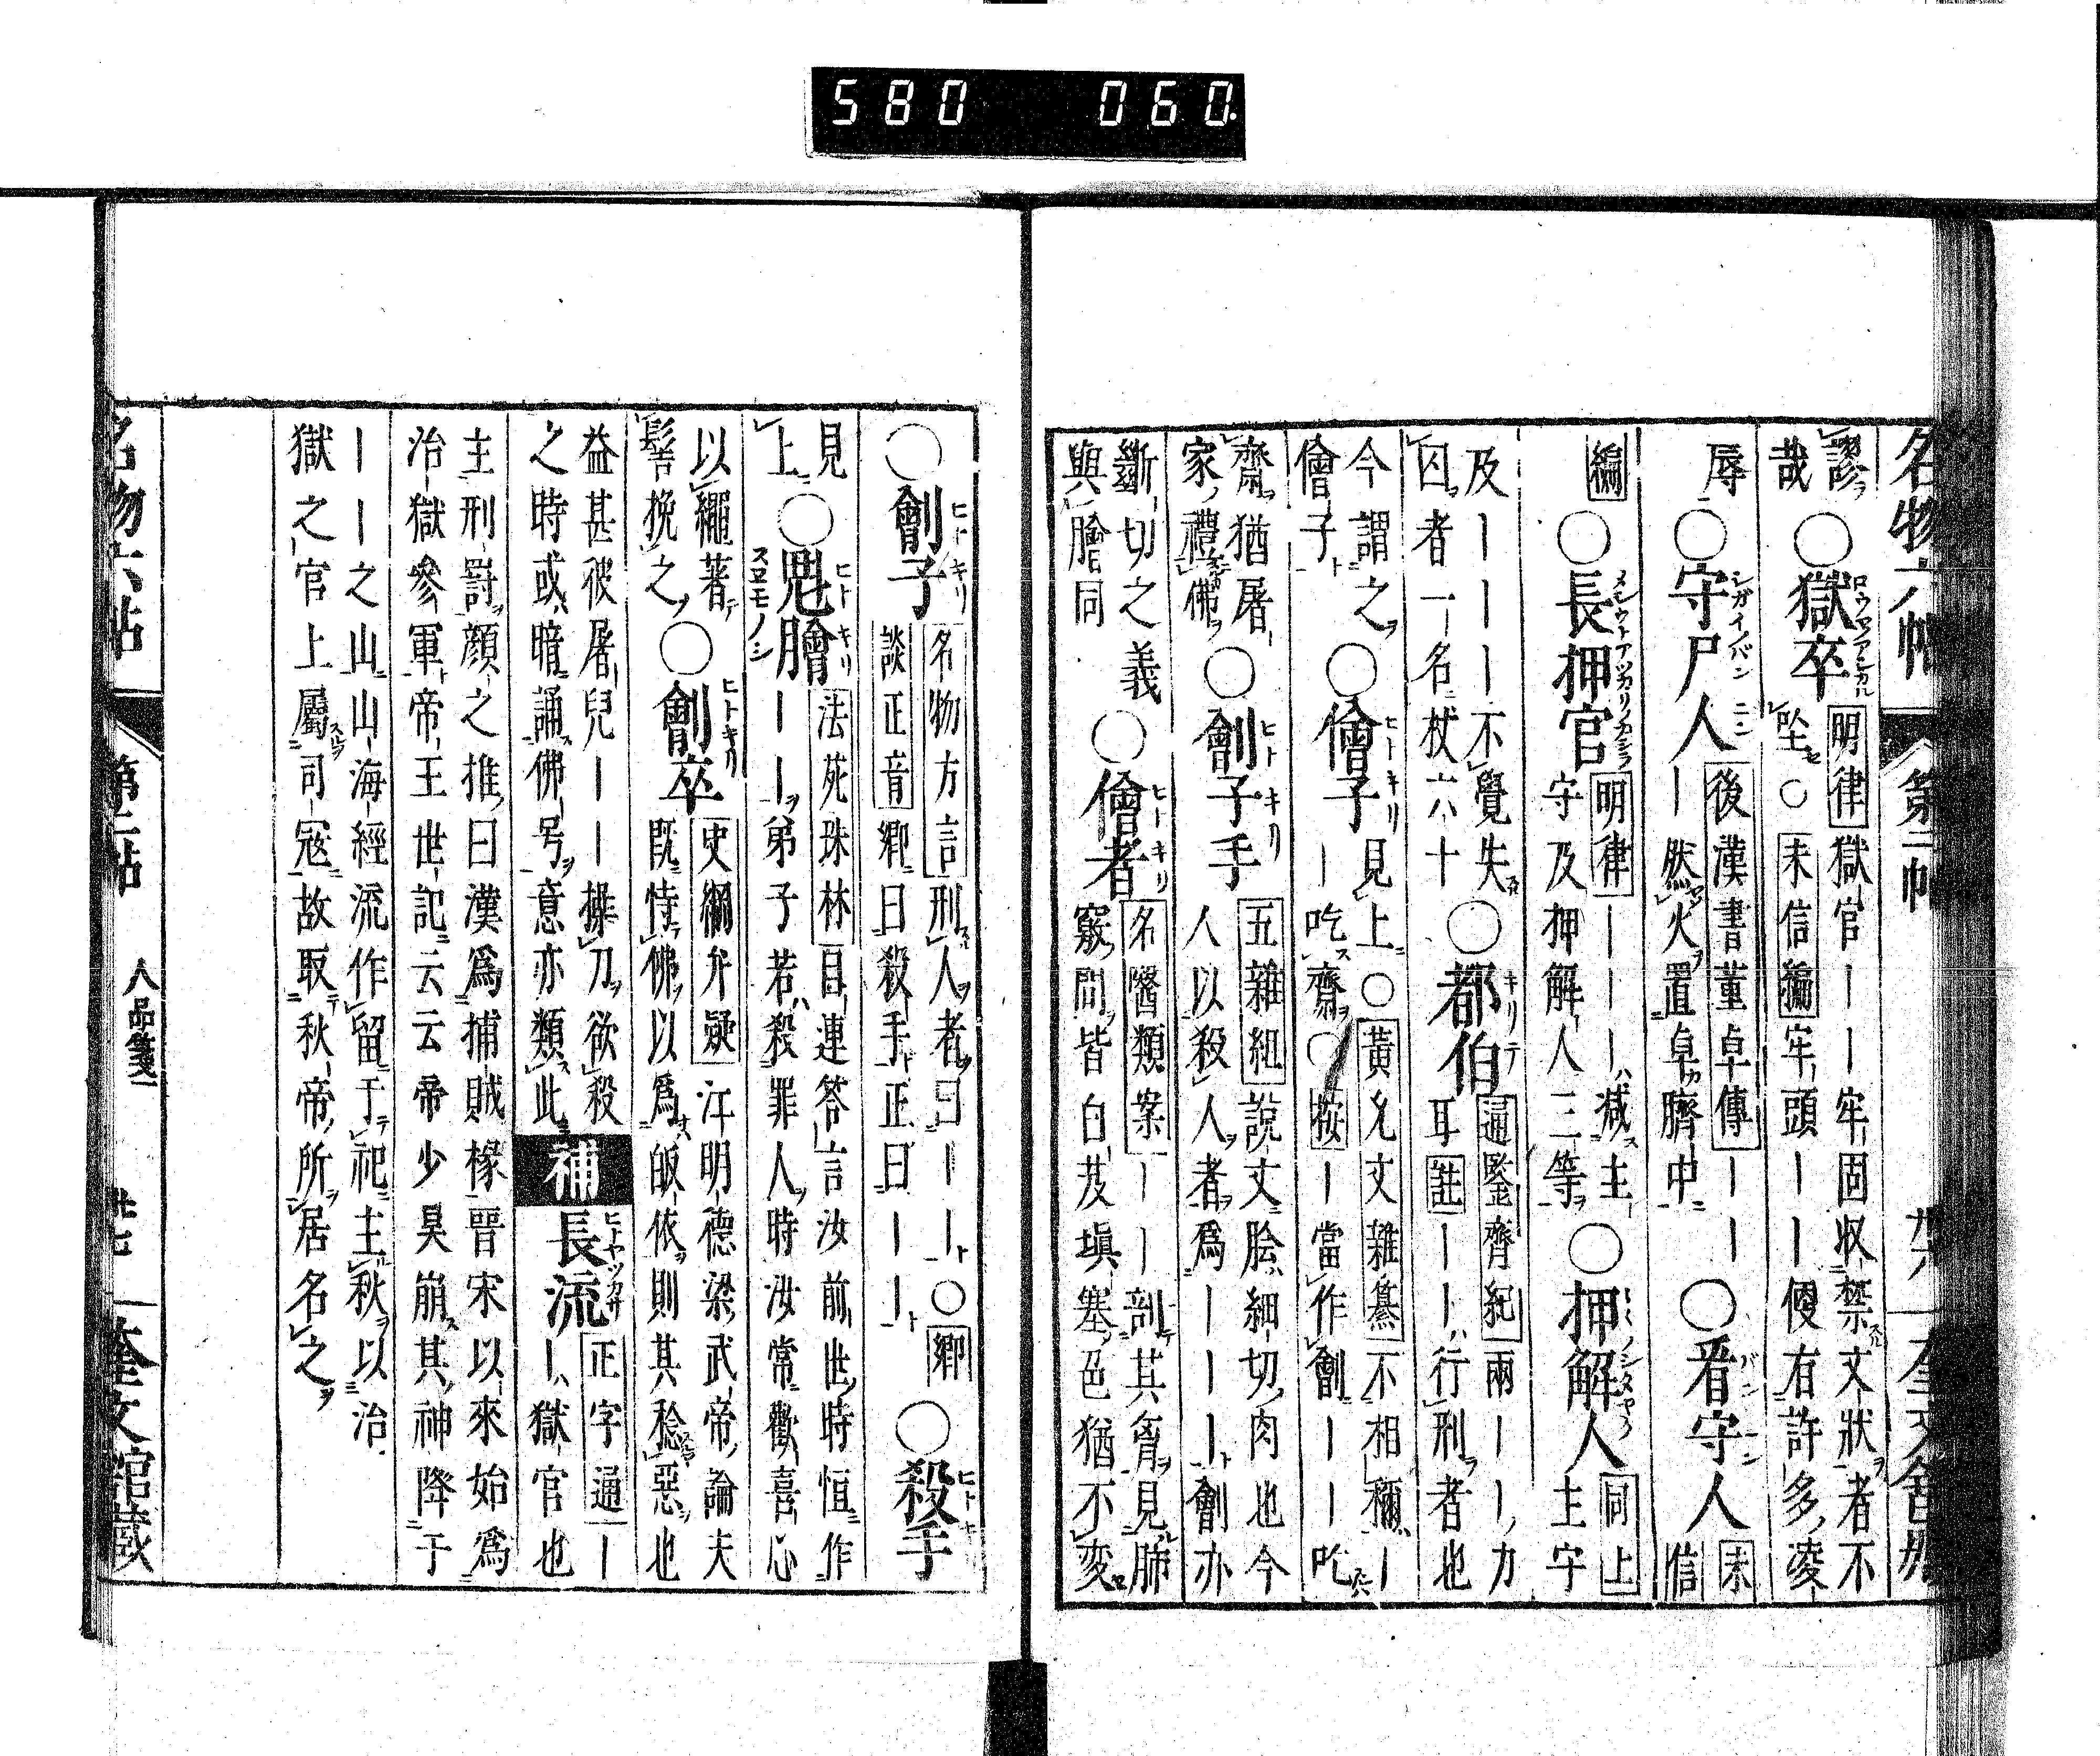 580 060.
名物六帖 第二帖 廿六 奎文館
謬
哉
○獄卒
明律獄官――牢固収禁文状者不
坐○未信編牢頭――便有許多凌
辱
○守尸人
後漢書董卓傳――
―然火置卓臍中
○看守人
未
信
編
○長押官
明律―――減主
守及押解人三等
○押解人
同上
主守
及―――不覺失
囚者一名杖六十
○都伯
通鑒齊紀兩――力
耳註――行刑者也
今謂之
儈子
○儈子
見上○黃允文雜纂不相稱―
―吃齋○按―當作劊――吃
齋猶屠
家禮佛
○劊子手
五雜組說文膾細切肉也今
人以殺人者為―――劊亦
斷切之義
與膾同
○儈者
名醫類案――剖其胷見肺
竅間皆白芨塡塞色猶不変
○劊子
名物方言刑人者曰――○鄉
談正音鄉曰殺手正曰――
○殺手
見
上
○魁膾
法苑珠林目連答言汝前世時恒作
――弟子若殺罪人時汝常歡喜心
以繩著
髻挽之
○劊卒
史綱弁疑江明德梁武帝論夫
既恃佛以爲皈依則其稔惡也
益甚彼屠兒――擁刀欲殺
之時或暗誦佛号意亦類此
補
長流
正字通―
―獄官也
主刑罰顏之推曰漢爲捕賊椽晋宋以來始爲
治獄參軍帝王世記云云帝少昊崩其神降于
――之山山海經流作留于祀主秋以治
獄之官上屬司寇故取秋帝所居名之
名物六帖 第二帖 人品箋一 廿七 奎文館藏